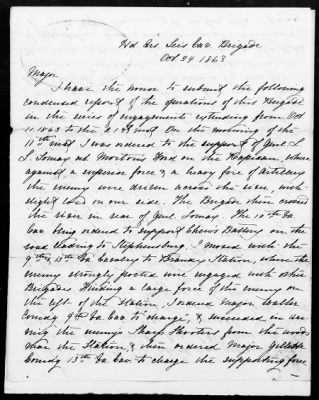 Hd Qrs Lee's Cav. Brigade
Oct 29 1863
Major
I have the honor to submit the following
condensed report of the operations of this Brigade
in the series of engagements extending from Oct
11. 1863 to the 21st inst On the morning of the
11th inst I was ordered to the support of Genl L
L Lomax at Morton's Ford on the Rapidan, where
against a superior force & a heavy fire of Artillery
the enemy were driven across the river, with
slight loss on our side. The Brigade then crossed
the river in rear of Genl Lomax. The 10th Va
Cav being ordered to support Chew's Battery on the
road leading to Stephensburg, I moved with the
9th & 13th Va Cavalry to Brandy Station, where the
enemy strongly posted were engaged with other
Brigades Finding a large force of the enemy on
the left of the Station, I ordered Major Waller
Comdg 9th Va Cav to charge, & succeeded in dri
ving the enemy's Sharp Shooters from the woods
near the Station, & then ordered Major Gillette
Comdg 13th Va Cav. to charge the supporting force